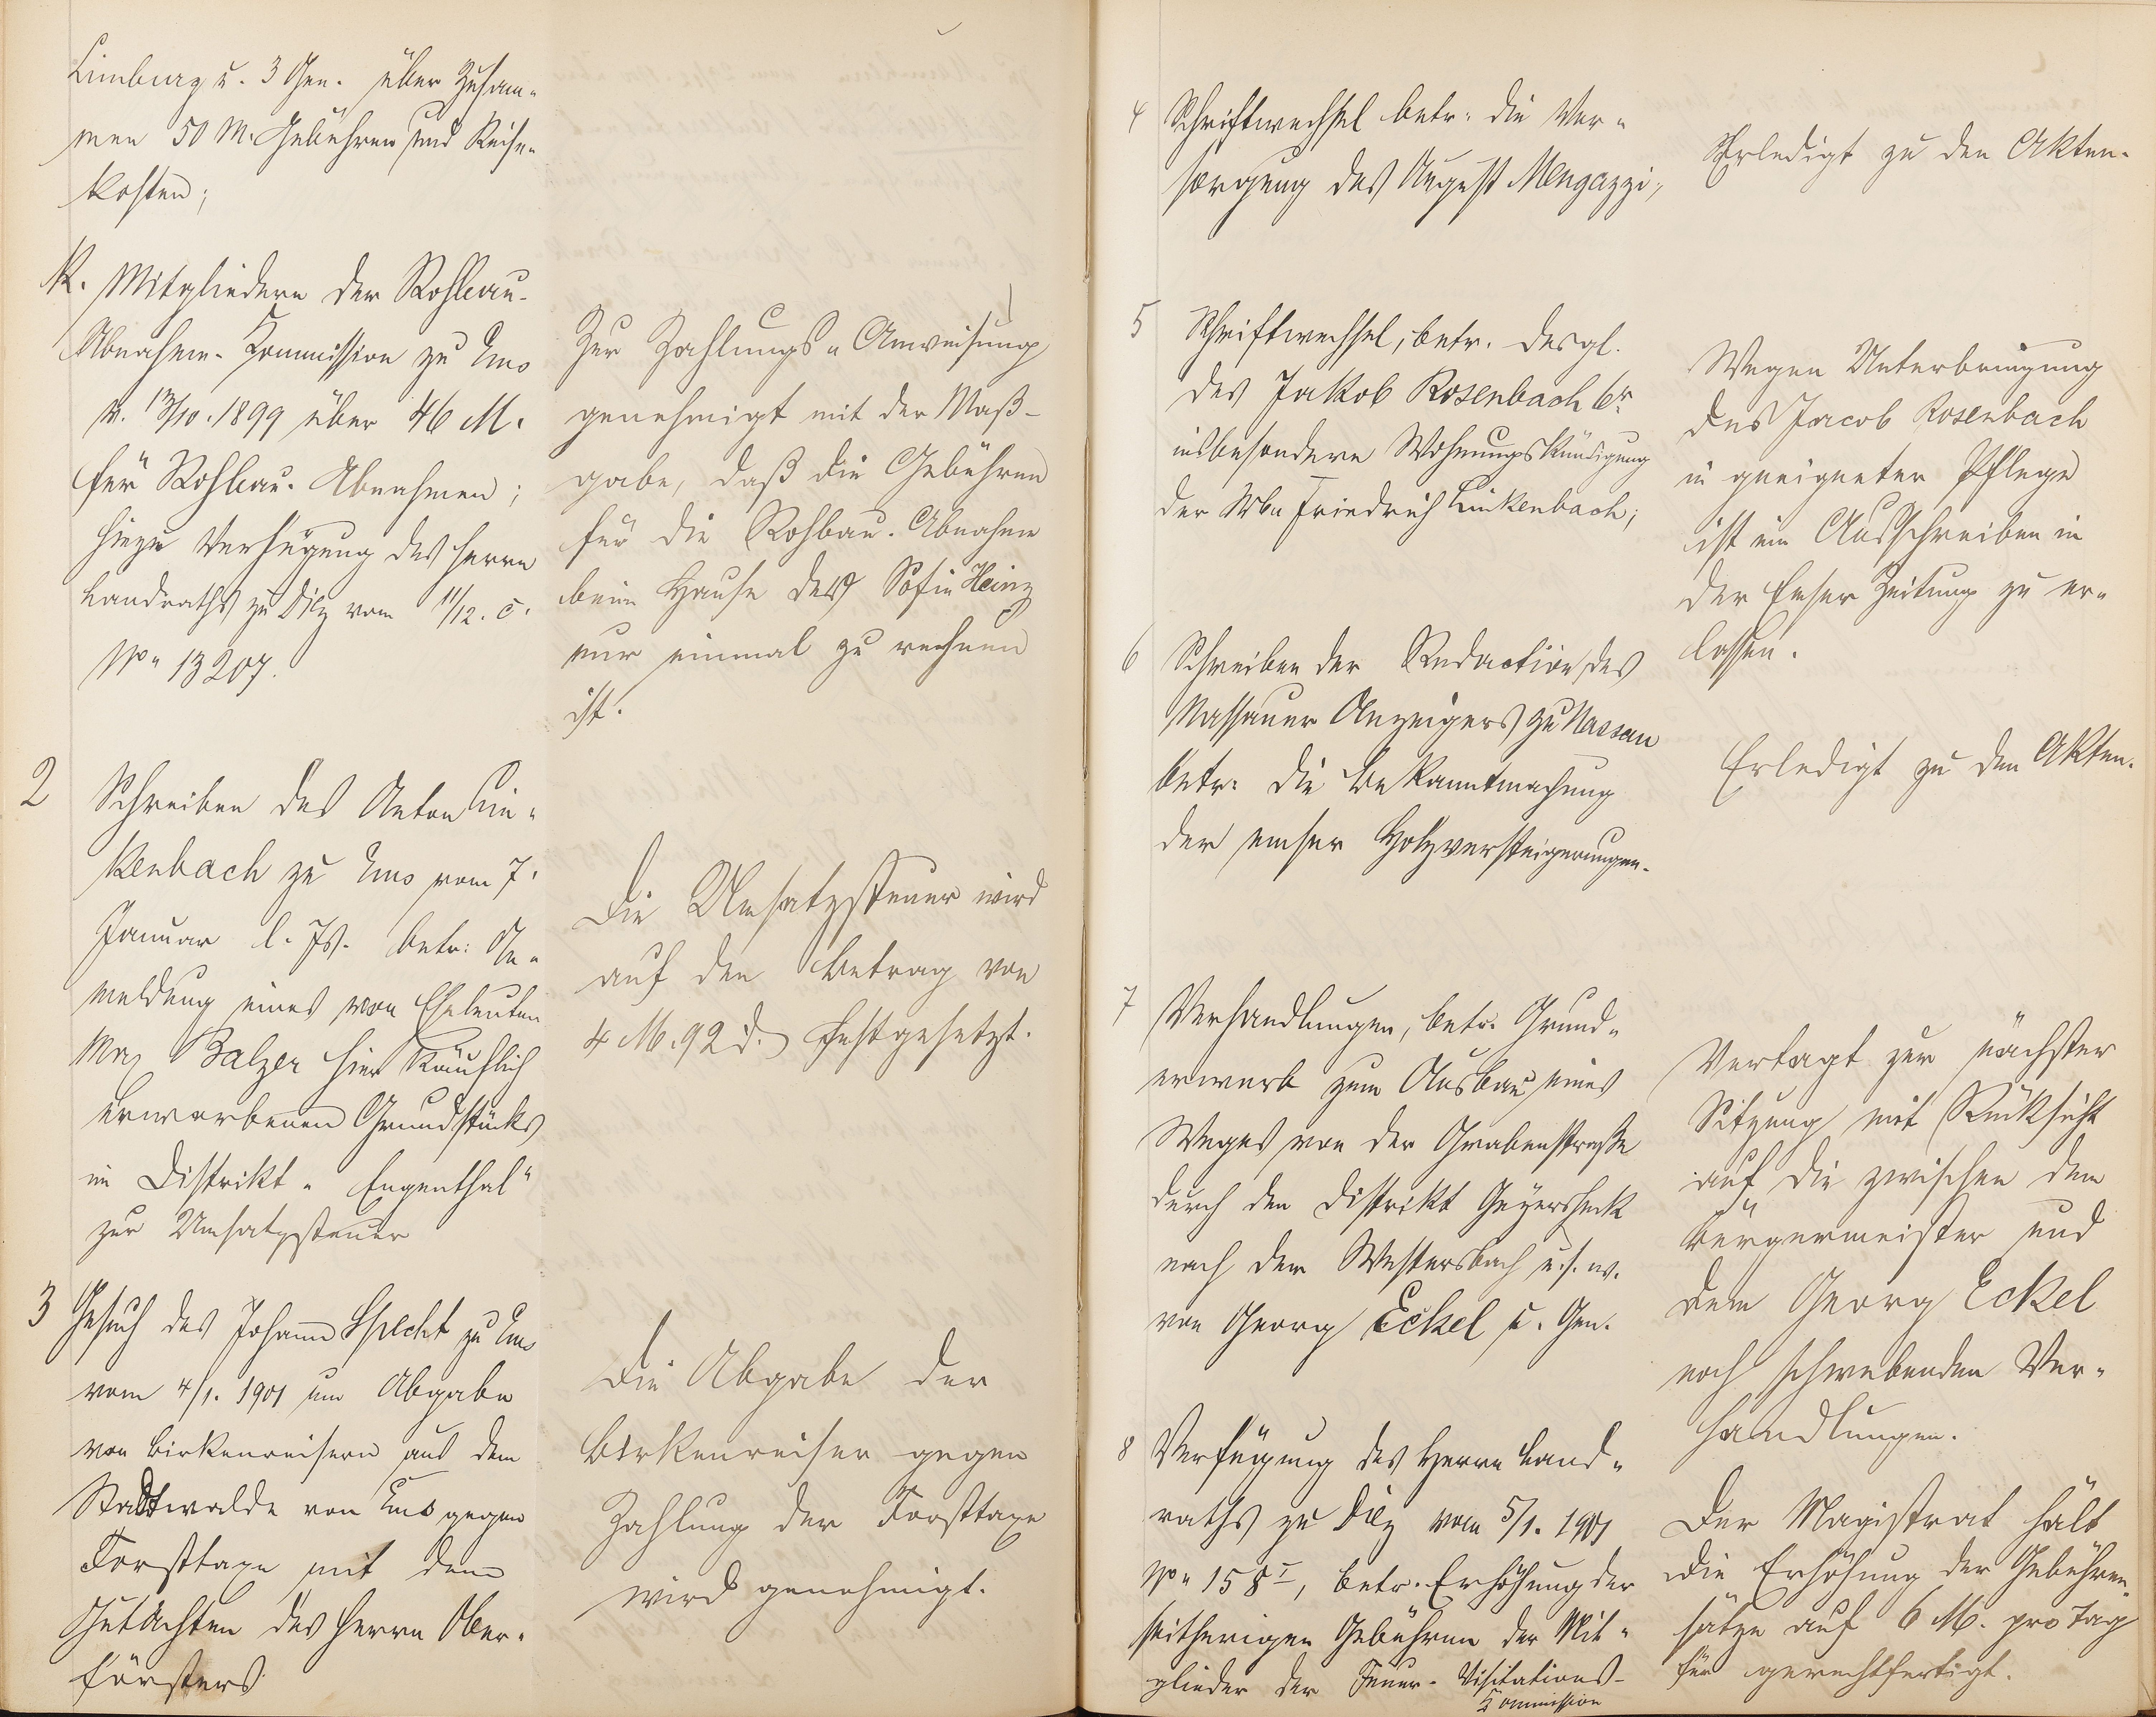 Limburg u. 3 Gen. über Zusam-
men 50 M. Gebühren und Reise-
kosten;
k. Mitgliedern der Rohbau-
Abnahme-Kommission zu Ems
v. 13/10. 1899 über 46 M.
für Rohbau-Abnahmen;
hiezu Verfügung des Herrn
Landraths zu Diez vom 11/12. c.
No. 13207.
Zur Zahlungs-Anweisung
genehmigt mit der Maß-
gabe, daß die Gebühren
für die Rohbau-Abnahme
beim Hause der Sofie Heinz
nur einmal zu rechnen
ist.
2 Schreiben des Anton Lin-
kenbach zu Ems vom 7.
Januar l. Js. betr. An-
meldung eines von Eheleuten
Max Balzer hier käuflich
erworbenen Grundstücks
im Distrikt "Engenthal"
zur Umsatzsteuer
Die Umsatzsteuer wird
auf den Betrag von
4 M. 92 d. festgesetzt.
3 Gesuch des Johann Specht zu Ems
vom 4/1. 1901 um Abgabe
von Birkenreisern aus dem
Stadtwalde von Ems gegen
Forsttaxe mit dem
Gutachten des Herrn Ober-
försters
Die Abgabe der
Birkenreiser gegen
Zahlung der Forsttaxe
wird genehmigt.
4 Schriftwechsel betr. die Ver-
sorgung des August Mengazzi,
Erledigt zu den Akten.
5 Schriftwechsel, betr. desgl.
des Jakob Rosenbach 6r
insbesondere Wohnungskündigung
der Friedrich Linkenbach;
Wegen Unterbringung
des Jacob Rosenbach
in geeigneter Pflege
ist ein Ausschreiben in
der Emser Zeitung zu er-
lassen.
6 Schreiben der Redaction des
Nassauer Anzeigers zu Nassau
betr. die Bekanntmachung
der emser Holzversteigerungen.
Erledigt zu den Akten.
7 Verhandlungen, betr. Grund-
erwerb zum Ausbau eines
Weges von der Grabenstraße
durch den Distrikt Geyersheck
nach dem Westersbach u. s. w.
von Georg Eckel u. Gen.
Vertagt zur nächster
Sitzung mit Rücksicht
auf die zwischen dem
Bürgermeister und
dem Georg Eckel
noch schwebenden Ver-
handlungen.
8 Verfügung des Herrn Land-
raths zu Diez vom 5/1. 1901
No. 158 I, betr. Erhöhung der
seitherigen Gebühren der Mit-
glieder der Feuer-Visitations-
Kommission
Der Magistrat hält
die Erhöhung der Gebühren-
sätze auf 6 M. pro Tag
für gerechtfertigt.